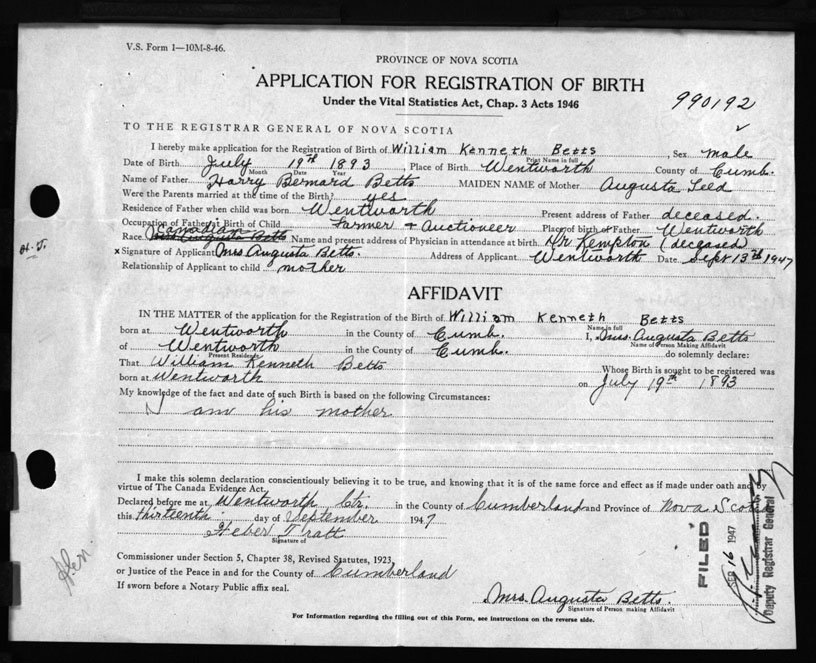 V.S. Form 1—10M-8-46.
PROVINCE OF NOVA SCOTIA
APPLICATION FOR REGISTRATION OF BIRTH
Under the Vital Statistics Act, Chap. 3 Acts 1946
990192
TO THE REGISTRAR GENERAL OF NOVA SCOTIA
I hereby make application for the Registration of Birth of William Kenneth Betts, Sex male
Print Name in full
Date of Birth July 19th 1893 Place of Birth Wentworth County of Cumb.
Month Date Year
Name of Father Harry Bernard Betts MAIDEN NAME of Mother Augusta Teed
Were the Parents married at the time of the Birth? yes
Residence of Father when child was born Wentworth Present address of Father deceased.
Occupation of Father at Birth of Child Farmer + Auctioneer Place of birth of Father Wentworth
Race Canadian Mrs Augusta Betts Name and present address of Physician in attendance at birth Dr Kempton (deceased)
x Signature of Applicant Mrs Augusta Betts. Address of Applicant Wentworth Date Sept 13th 1947
Relationship of Applicant to child mother
AFFIDAVIT
IN THE MATTER of the application for the Registration of Birth of William Kenneth Betts
Name in full
born at Wentworth in the County of Cumb. I, Mrs. Augusta Betts
Name of Person Making Affidavit
of Wentworth in the County of Cumb. do solemnly declare:
Present Residence
That William Kenneth Betts Whose Birth is sought to be registered was
born at Wentworth on July 19th 1893
My knowledge of the fact and date of such Birth is based on the following Circumstances:
I am his mother
I make this solemn declaration conscientiously believing it to be true, and knowing that it is of the same force and effect as if made under oath and by
virtue of The Canada Evidence Act.
Declared before me at Wentworth Ctr. in the County of Cumberland and Province of Nova Scotia
this thirteenth day of September 1947
Heber Tratt
Signature of
Commissioner under Section 5, Chapter 38, Revised Statutes, 1923,
or Justice of the Peace in and for the County of Cumberland
If sworn before a Notary Public affix seal.
Mrs. Augusta Betts.
Signature of Person making Affidavit
For Information regarding the filling out of this Form, see instructions on the reverse side.
FILED
SEP 16 1947
Deputy Registrar General